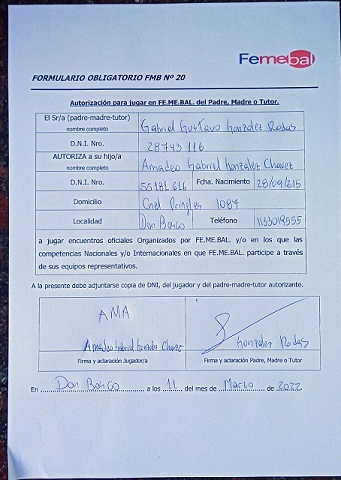 Femebal
FORMULARIO OBLIGATORIO FMB Nº 20
Autorización para jugar en FE.ME.BAL. del Padre, Madre o Tutor.
El Sr/a (padre-madre-tutor) Gabriel Gustavo Gonzalez Rodas
nombre completo
D.N.I. Nro. 28743116
AUTORIZA a su hijo/a Amadeo Gabriel Gonzalez Chavez
nombre completo
D.N.I. Nro. 55181616 Fcha. Nacimiento 28/09/215
Domicilio Cnel Pringles 1087
Localidad Don Bosco Teléfono 1133019555
a jugar encuentros oficiales Organizados por FE.ME.BAL. y/o en los que las
competencias Nacionales y/o Internacionales en que FE.ME.BAL. participe a través
de sus equipos representativos.
A la presente debe adjuntarse copia de DNI, del jugador y del padre-madre-tutor autorizante.
AMA
Amadeo Gabriel Gonzalez Chavez Gonzalez Rodas
Firma y aclaración Jugador/a Firma y aclaración Padre, Madre o Tutor
En Don Bosco a los 11 del mes de Marzo de 2022